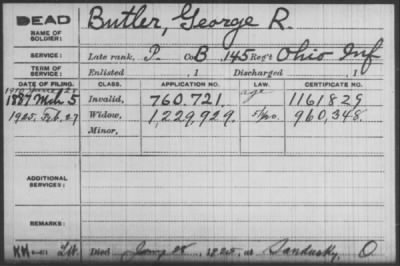 DEAD
NAME OF SOLDIER:
Butler, George R.
SERVICE:
Late rank, P. Co. B, 145 Reg't Ohio Inf
TERM OF SERVICE:
Enlisted , 1 Discharged , 1
DATE OF FILING. CLASS. APPLICATION NO. LAW. CERTIFICATE NO.
1887 Mch. 5 Invalid, 760.721. age 1161829
1925. Feb. 27 Widow, 1,229,929. 960,348.
Minor,
ADDITIONAL SERVICES:
REMARKS:
Died 1925, at Sandusky, O